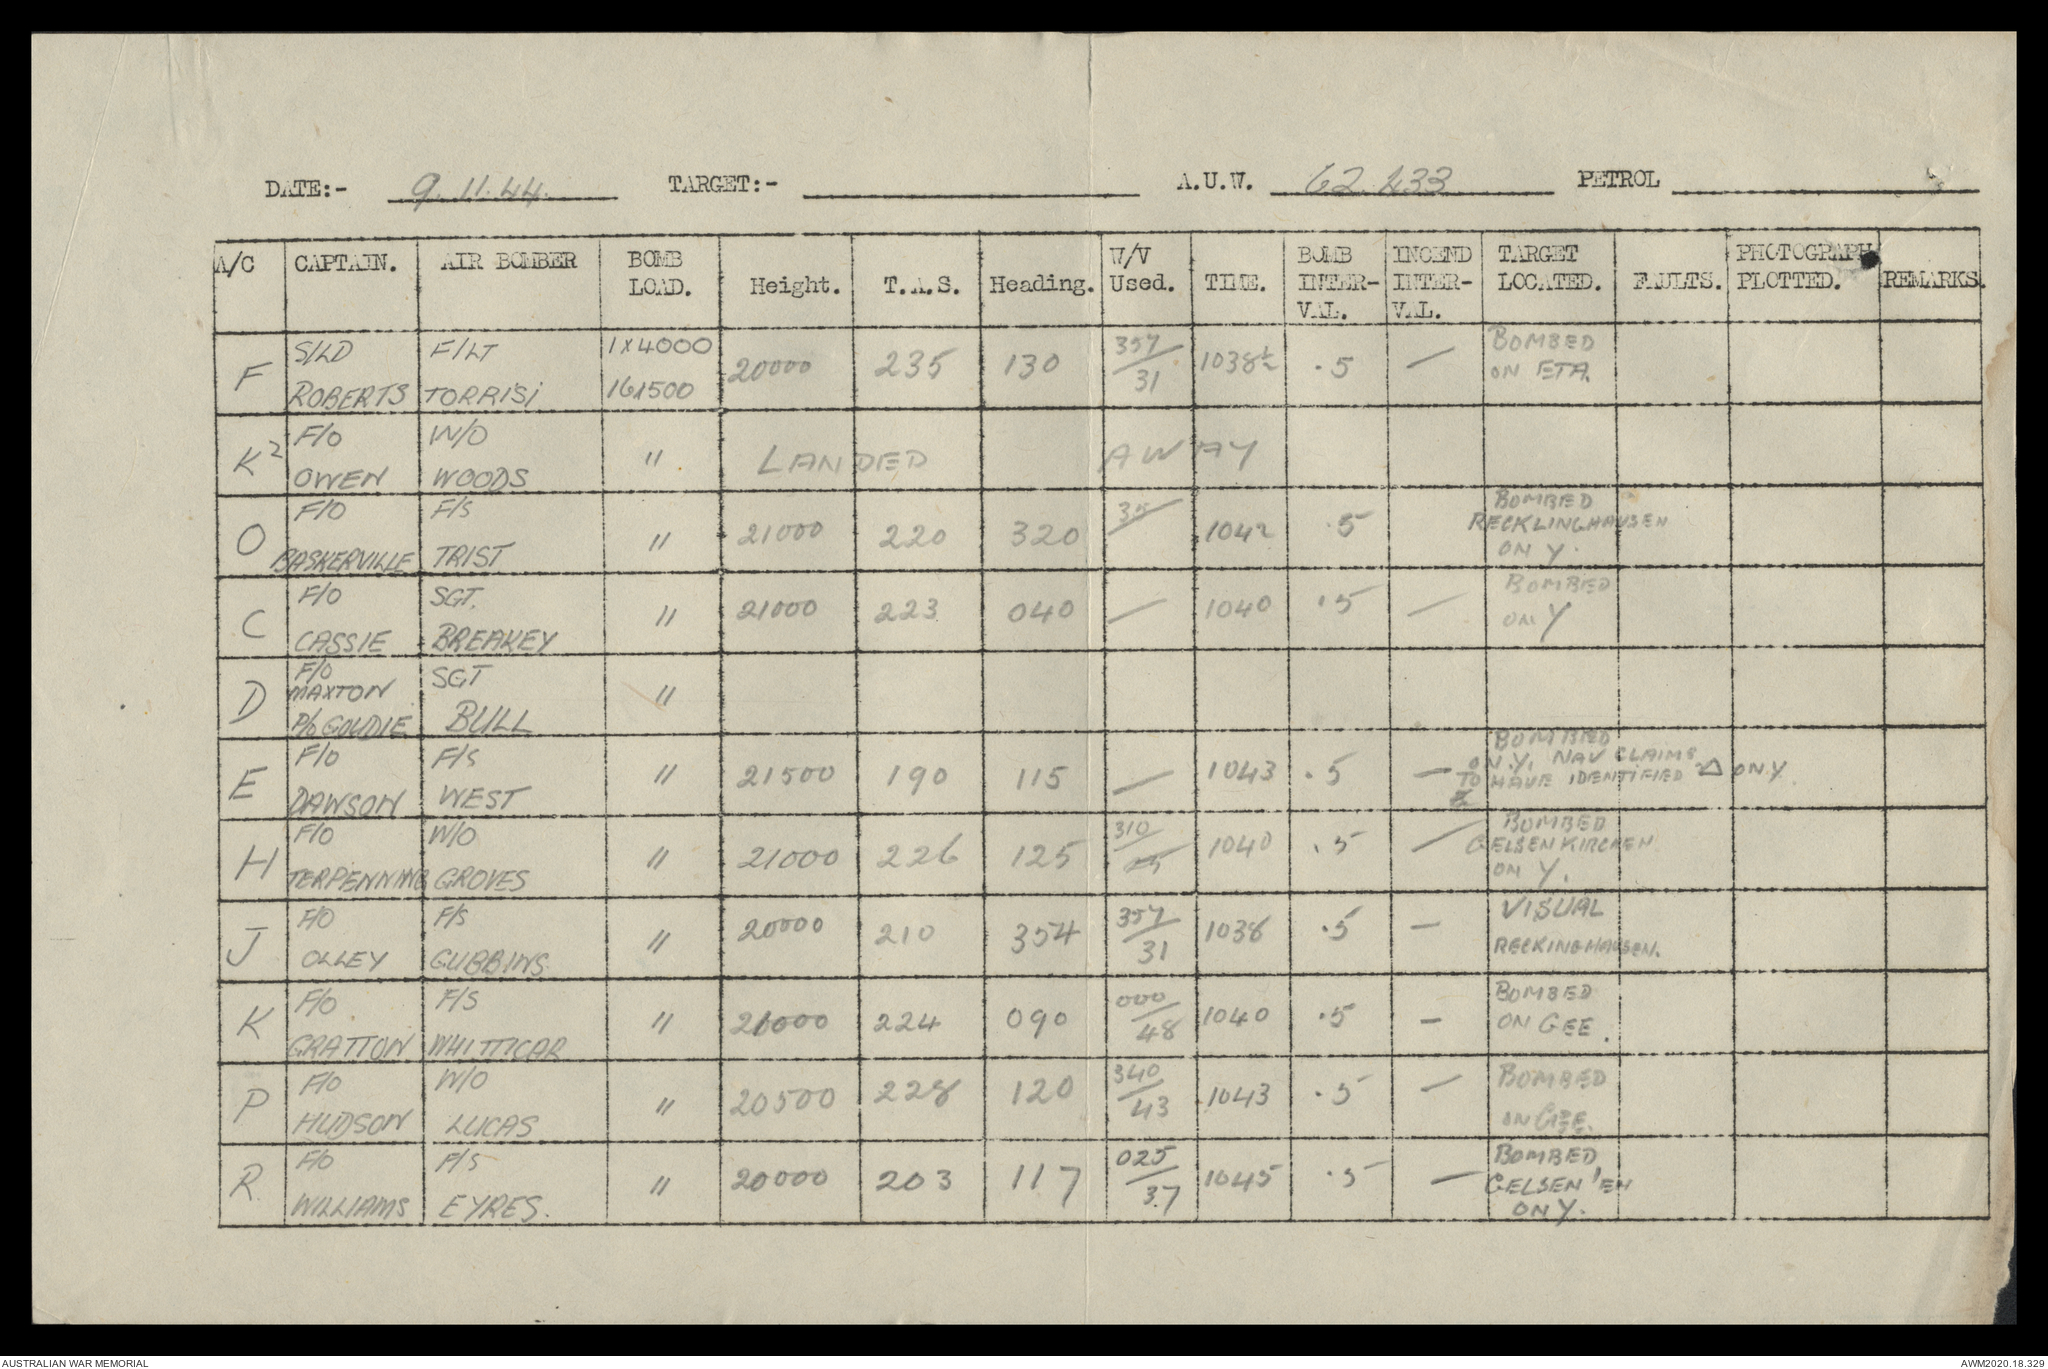 DATE:- 9.11.44. TARGET:- A.U.W. 62.433 PETROL
A/C CAPTAIN. AIR BOMBER BOMB LOAD. Height. T.A.S. Heading. W/V Used. TIME. BOMB INTER-VAL. INCEND INTER-VAL. TARGET LOCATED. FAULTS. PHOTOGRAPH PLOTTED. REMARKS.
F S/LD ROBERTS F/LT TORRISI 1X4000 16X500 20000 235 130 357/31 1038½ .5 — BOMBED ON ETA.
K² F/O OWEN W/O WOODS " LANDED AWAY
O F/O BASKERVILLE F/S TRIST " 21000 220 320 35/ 1042 .5 BOMBED RECKLINGHAUSEN ON Y.
C F/O CASSIE SGT. BREAKEY " 21000 223 040 — 1040 .5 — BOMBED ON Y
D F/O MAXTON P/O GOUDIE SGT BULL "
E F/O DAWSON F/S WEST " 21500 190 115 — 1043 .5 — BOMBED ON Y. NAV CLAIMS TO HAVE IDENTIFIED △ ON Y.
H F/O TERPENNING W/O GROVES " 21000 226 125 310/25 1040 .5 — BOMBED GELSENKIRCHEN ON Y.
J F/O OLLEY F/S GUBBINS " 20000 210 354 357/31 1038 .5 — VISUAL RECKINGHAUSEN.
K F/O GRATTON F/S WHITTICAR " 21000 224 090 000/48 1040 .5 — BOMBED ON GEE.
P F/O HUDSON W/O LUCAS " 20500 228 120 340/43 1043 .5 — BOMBED ON GEE.
R F/O WILLIAMS F/S EYRES. " 20000 203 117 025/37 1045 .5 — BOMBED GELSEN'EN ON Y.
AUSTRALIAN WAR MEMORIAL AWM2020.18.329